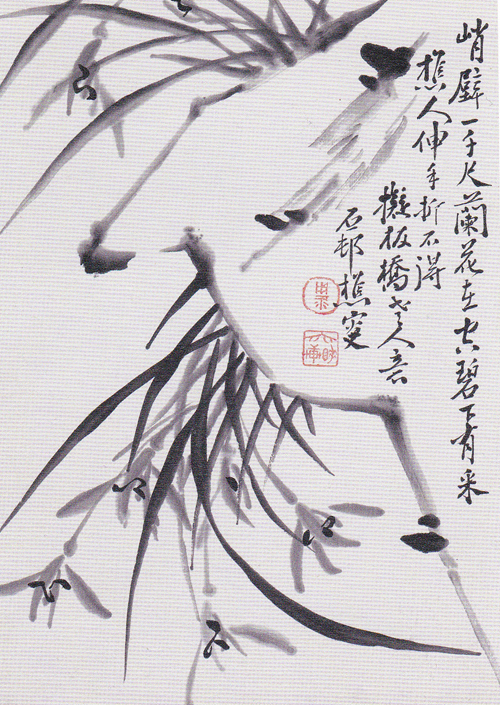 峭壁一千尺蘭花在空碧下有采
樵人伸手折不得
擬板橋老人意
石邨樵叟